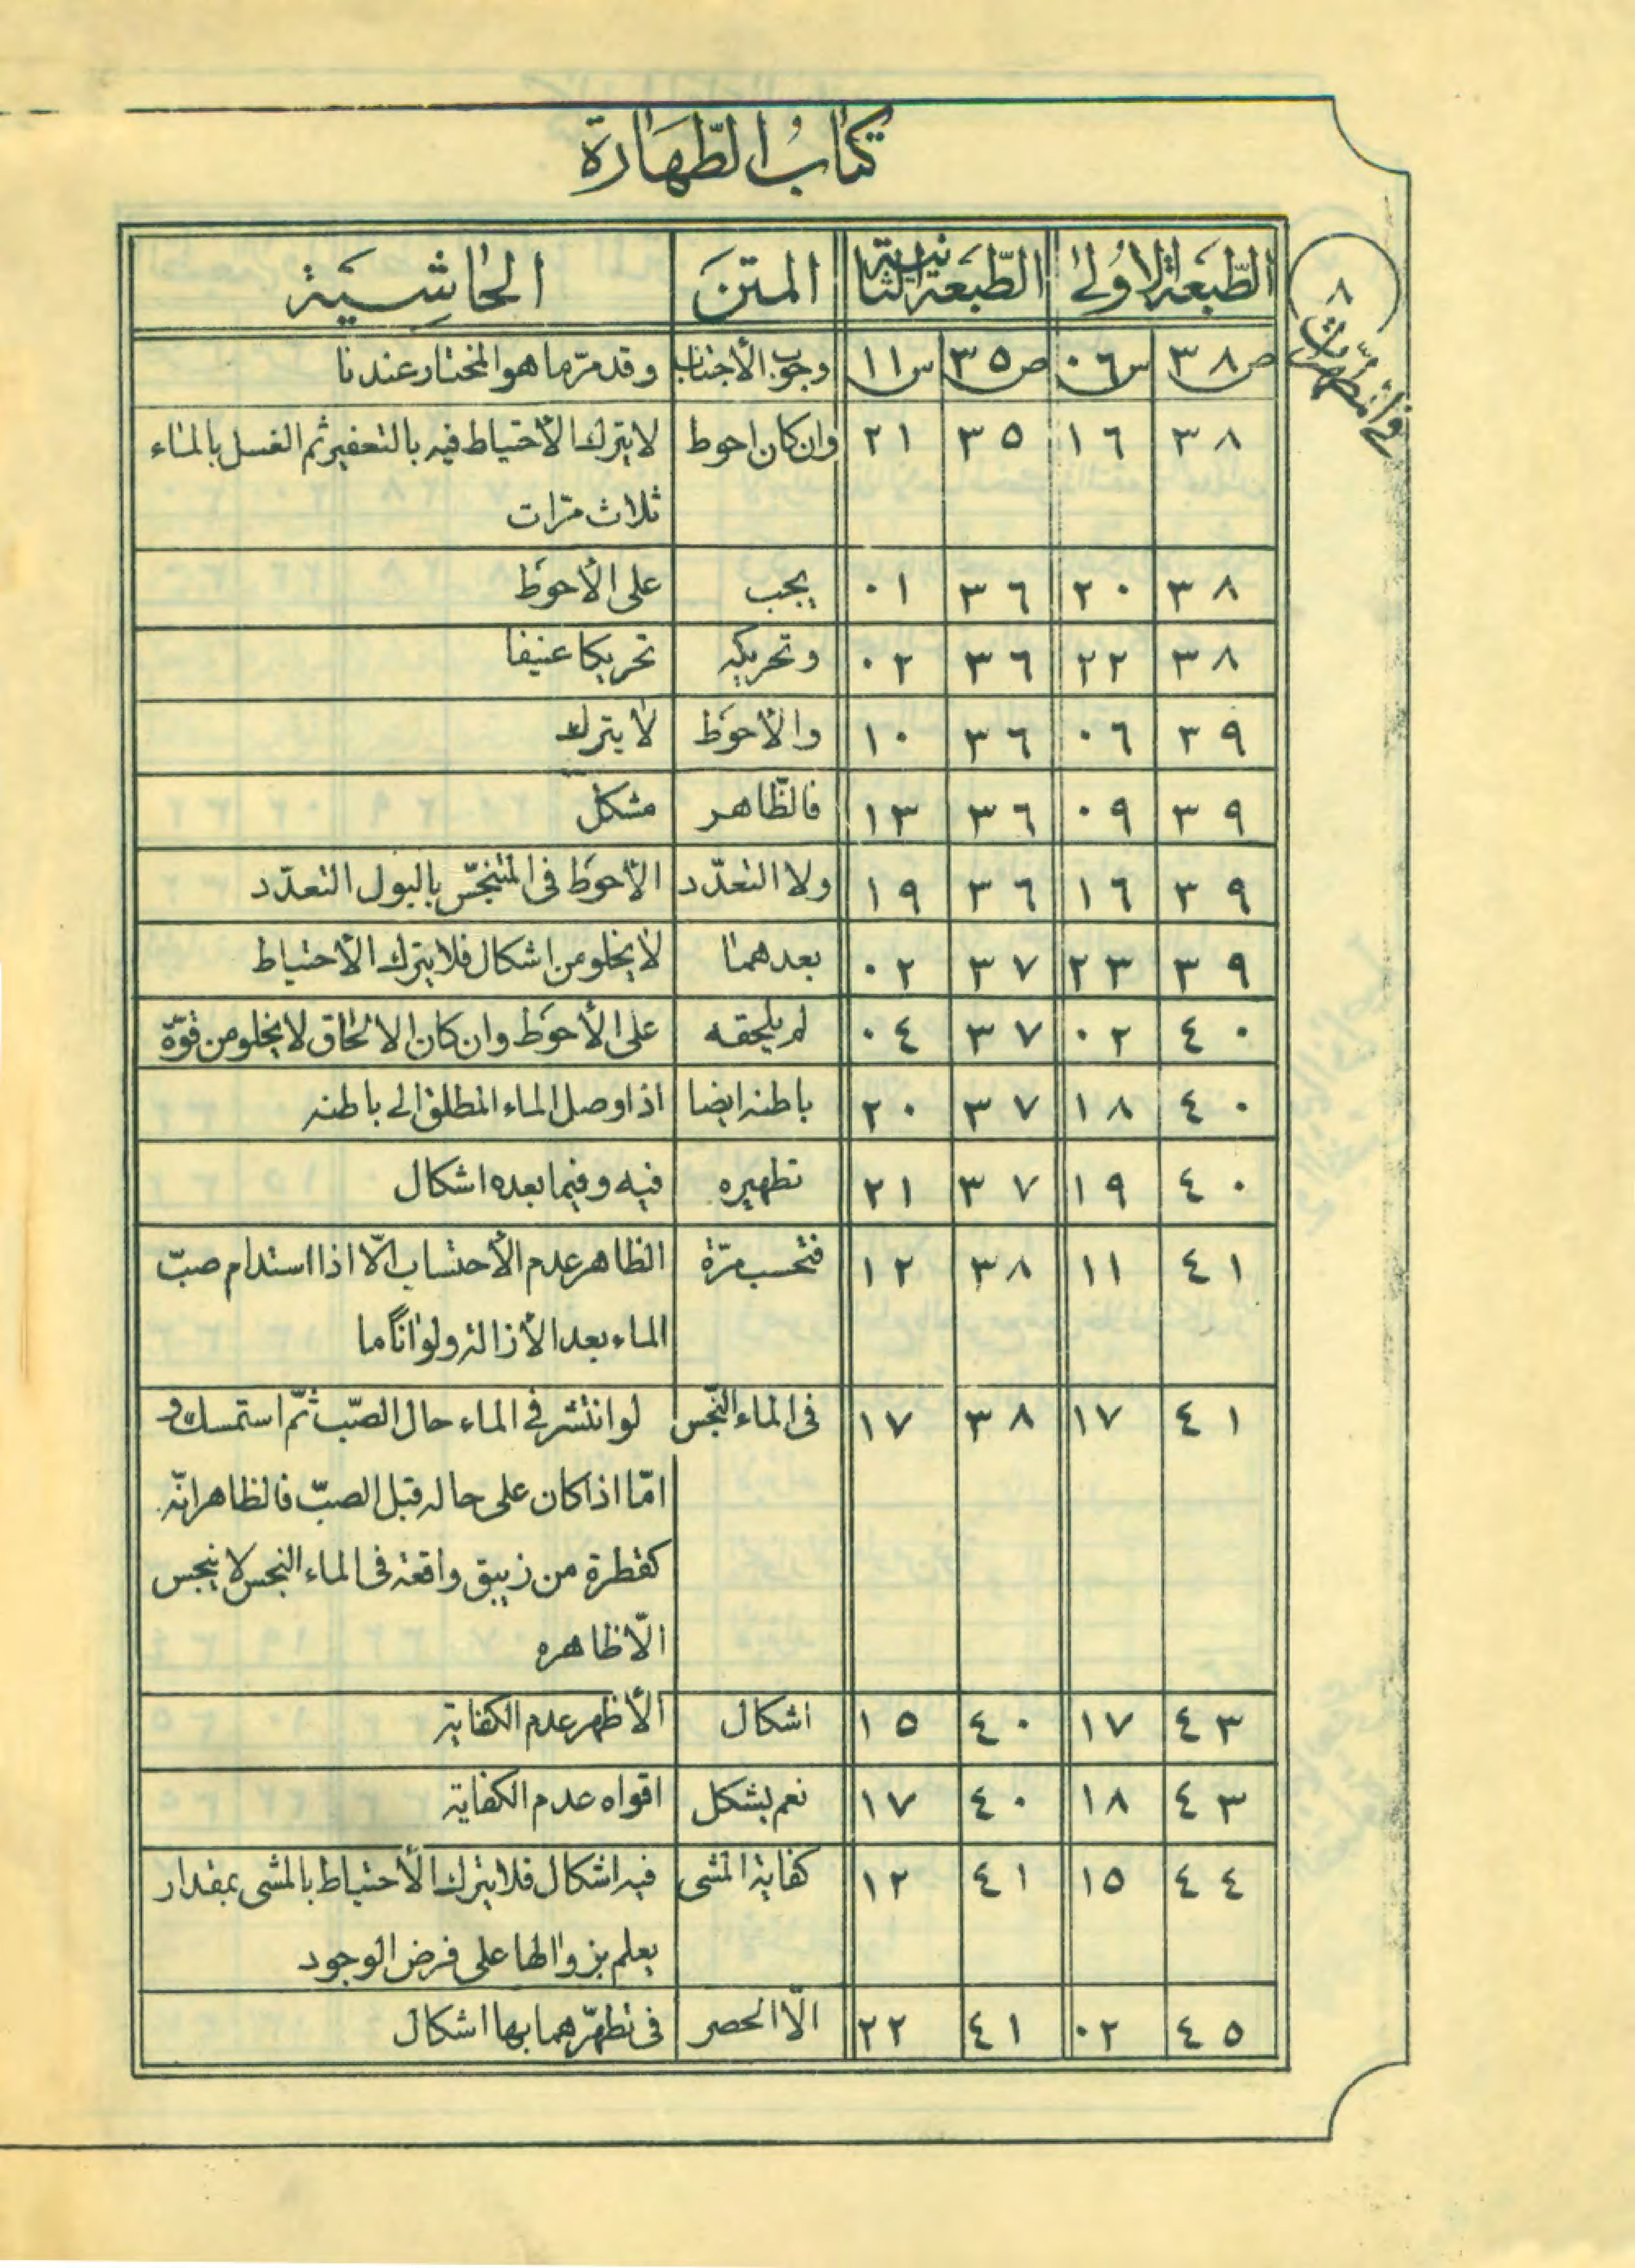 كتاب الطّهارة
٨
في المطهرات
الطّبعة الاولى الطّبعة الثانية المتن الحاشية
ص ٣٨ س ٠٦ ص ٣٥ س ١١ وجوب الأجتناب وقد مرّ ما هو المختار عندنا
٣٨ ١٦ ٣٥ ٢١ وان كان احوط لا يترك الأحتياط فيه بالتعفير ثم الغسل بالماء
ثلاث مرّات
٣٨ ٢٠ ٣٦ ٠١ يجب على الأحوَط
٣٨ ٢٢ ٣٦ ٠٢ وتحريكه تحريكا عنيفا
٣٩ ٠٦ ٣٦ ١٠ والأحوَط لا يترك
٣٩ ٠٩ ٣٦ ١٣ فالظّاهر مشكل
٣٩ ١٦ ٣٦ ١٩ ولا التعدّد الأحوَط في المتنجّس بالبول التعدّد
٣٩ ٢٣ ٣٧ ٠٢ بعدهما لا يخلو من اشكال فلا يترك الأحتياط
٤٠ ٠٢ ٣٧ ٠٤ لم يلحقه على الأحوَط وان كان الالحاق لا يخلو من قوّة
٤٠ ١٨ ٣٧ ٢٠ باطنه ايضا اذا وصل الماء المطلق الى باطنه
٤٠ ١٩ ٣٧ ٢١ تطهيره فيه وفيما بعده اشكال
٤١ ١١ ٣٨ ١٢ فتحسب مرّة الظاهر عدم الأحتساب الّا اذا استدام صبّ
الماء بعد الأزالة ولو اناًما
٤١ ١٧ ٣٨ ١٧ في الماء النّجس لو انتشر في الماء حال الصّب ثمّ استمسك و
امّا اذا كان على حاله قبل الصبّ فالظاهر انّه
كقطرة من زيبق واقعة في الماء النجس لا ينجس
الّا ظاهره
٤٣ ١٧ ٤٠ ١٥ اشكال الأظهر عدم الكفاية
٤٣ ١٨ ٤٠ ١٧ نعم يشكل اقواه عدم الكفاية
٤٤ ١٥ ٤١ ١٢ كفاية المشى فيه اشكال فلا يترك الأحتياط بالمشى بمقدار
يعلم بزوالها على فرض الوجود
٤٥ ٠٢ ٤١ ٢٢ الّا الحصر في تطهّرهما بها اشكال